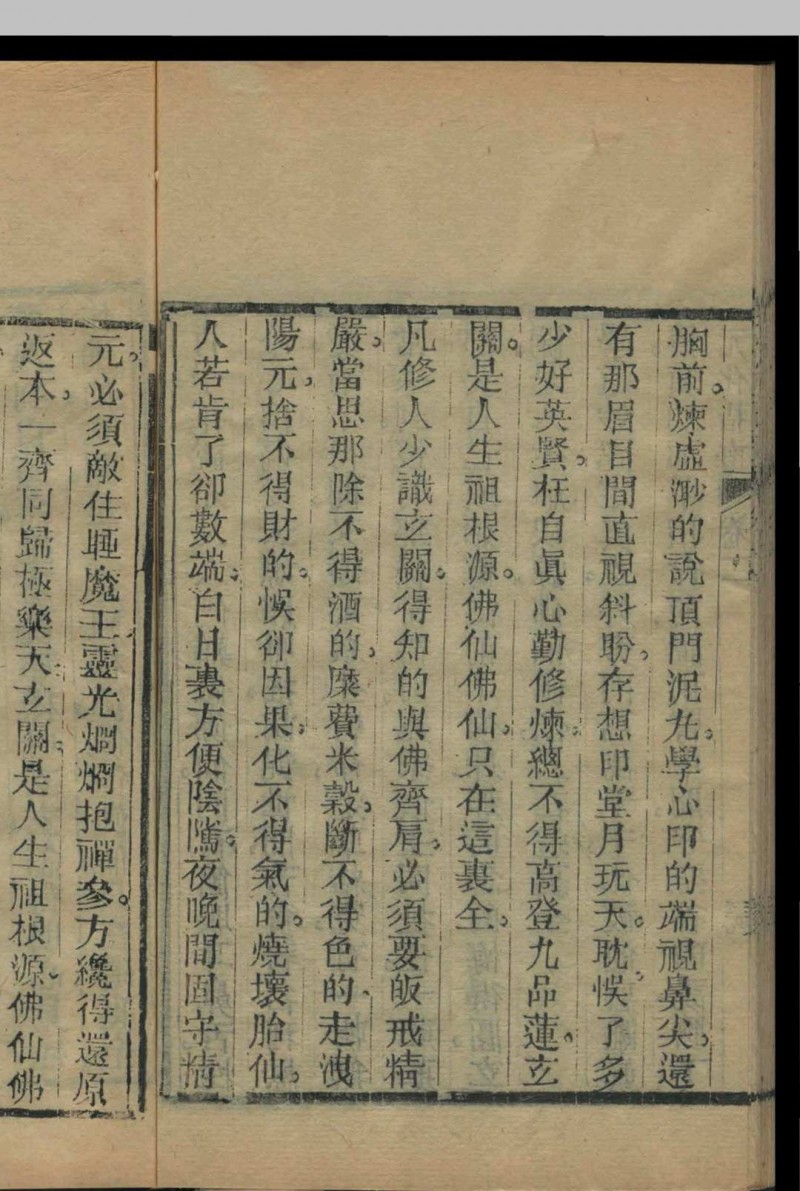 胸前。煉虛渺的說頂門泥丸。學心印的端視鼻尖。還
有那眉目間直視斜盼。存想印堂月玩天。耽悞了多
少好英賢。枉自眞心勤修煉。總不得高登九品蓮。玄
關。是人生祖根源。佛仙佛仙。只在這裏全。
凡修人少識玄關。得知的與佛齊肩。必須要皈戒精
嚴。當思那除不得酒的。糜費米穀。斷不得色的。走洩
陽元。捨不得財的。悞卻因果。化不得氣的。燒壞胎仙。
人若肯了卻數端。白日裏方便陰隲。夜晚間固守精
元。必須敵住睡魔王靈光燗燗抱禪參。方纔得還原
返本。一齊同歸極樂天玄關。是人生祖根源。佛仙佛